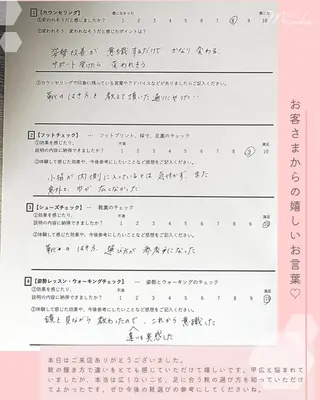 お客さまからの嬉しいお言葉♡
1【カウンセリング】
①変わりそうだと感じましたか?
感じなかった 1 2 3 4 5 6 7 8 9 10
②変われそう、変われなそうだと感じたポイントは?
姿勢改善が 意識するだけで かなり変わる
サポート受けたら 変われそう
②カウンセリングで印象に残っている言葉やアドバイスなどがありましたらご記入ください。
靴のはき方を 教えて頂いた通りにやりたい
2【フットチェック】 ― フットプリント、採寸、足裏のチェック
①効果を感じたり、
説明の内容に納得できましたか?
不満 1 2 3 4 5 6 7 8 9 10 満足
②体験して感じた変化や、今後参考にしたいことなど感想をご記入ください。
小指が内側に入っているとは 気付かず、また
意外と 巾が なくなかした
3【シューズチェック】 ― 靴裏のチェック
①効果を感じたり、
説明の内容に納得できましたか?
不満 1 2 3 4 5 6 7 8 9 10 満足
②体験して感じた変化や、今後参考にしたいことなど感想をご記入ください。
靴のはき方、選び方が 参考になった
4【姿勢レッスン・ウォーキングチェック】 ― 姿勢とウォーキングのチェック
①効果を感じたり、
説明の内容に納得できましたか?
不満 1 2 3 4 5 6 7 8 9 10 満足
②体験して感じた変化や、今後参考にしたいことなど感想をご記入ください。
鏡を見ながら 教わったので、これから意識した
違いを実感した
本日はご来店ありがとうございました。
靴の履き方で違いをとても感じていただけて嬉しいです。甲広と悩まれて
いましたが、本当は広くないこと、足に合う靴の選び方を知っていただけ
てよかったです。ぜひ今後の靴選びの参考にしてくださいね。